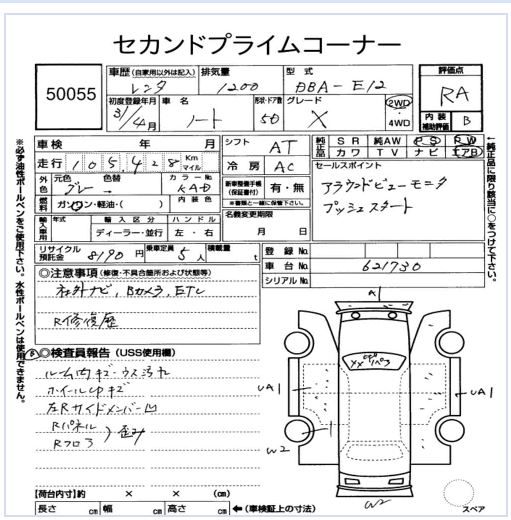 セカンドプライムコーナー
50055
車歴(自家用以外は記入)
レンタ
排気量
1200
型式
DBA-E12
評価点
RA
初度登録年月
31/4月
車名
ノート
形状・ドア数
5D
グレード
X
2WD
4WD
内装補助評価
B
車検 年 月
シフト
AT
純正品
SR 純AW PS PW
カワ TV ナビ エアB
走行
105,428
Km
マイル
冷房
AC
セールスポイント
アラウンドビューモニタ
プッシュスタート
外色
元色
グレー
色替
カラーNo.
KAD
燃料
ガソリン・軽油・( )
内装色
新車整備手帳(保証書付)
有・無
※書類と一緒に保管下さい。
輸入車用
年式
輸入区分
ディーラー・並行
ハンドル
左・右
名義変更期限
月 日
リサイクル預託金
8190円
乗車定員
5人
積載量
t
登録No.
車台No.
621730
シリアルNo.
◎注意事項(修復・不具合箇所および状態等)
社外ナビ,Bカメラ,ETC
R修復歴
◎検査員報告(USS使用欄)
ルーム内キズ・ウス汚れ
ホイールCPキズ
左Rサイドメンバー凹
Rパネル
Rフロア
歪み
A1
UA1
UA1
W2
W2
スペア
【荷台内寸】約 × × (cm)
長さ cm 幅 cm 高さ cm ←(車検証上の寸法)
※必ず油性ボールペンをご使用下さい。水性ボールペンは使用できません。
←純正品に限り該当に○をつけて下さい。